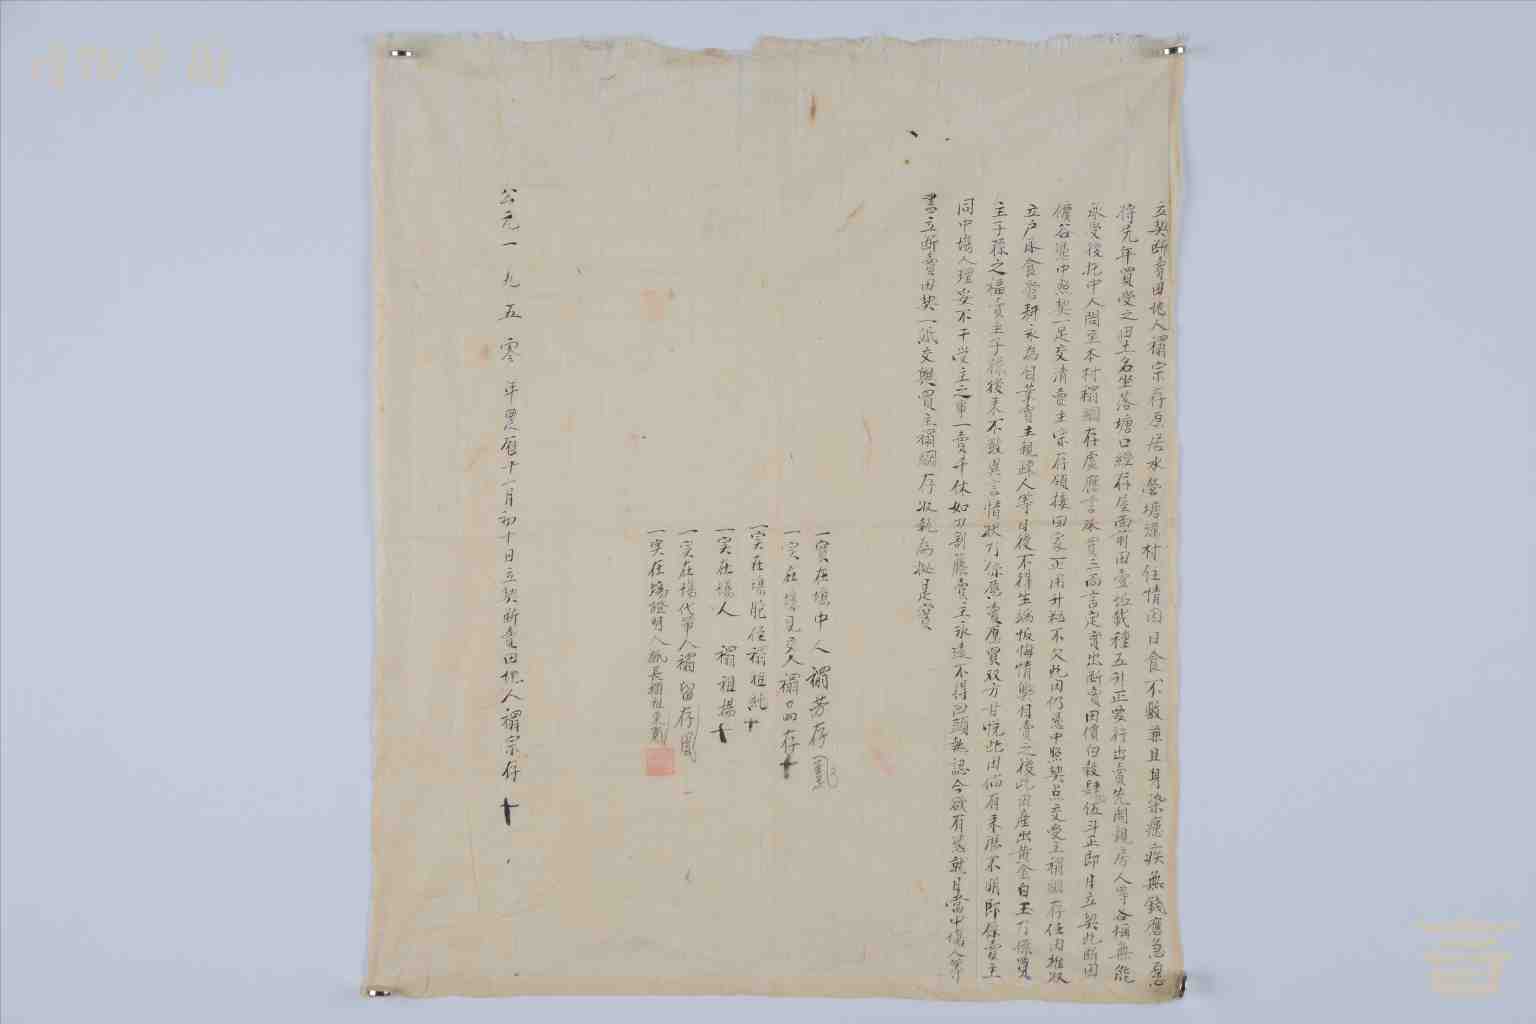 立契断賣田塊人禤宗存原居水營塘源村住情因日食不敷兼且身染瘧疾無錢應急愿
將先年買受之田土名坐落塘口經存屋面前田壹坵載種五升正要行出賣先問親房人等各稱無能
承受後托中人問至本村禤綱存處應言承買三面言定實出断賣田價白穀肆伍斗正即日立契此断田
價谷憑中照契一足交清賣主宗存領接回家正用升粒不欠此田仍憑中照契点交受主禤綱存任由推收
立户承食管耕永為自業賣主親疎人等日後不得生端恢悔情獘自賣之後此田産出黄金白玉乃係買
主子孫之福賣主子孫後来不敢異言情狀乃係愿賣應買双方甘悦此田倘有来歴不明即係賣主
同中塲人理妥不干受主之事一賣千休如刀割藤賣主永遠不得回頭執認今欲有憑就日當中塲人等
書立断賣田契一紙交與買主禤綱存收執為據是實
一實在塲中人禤芳存
一実在塲見交人禤存十
一実在塲胞侄禤祖純十
一実在塲人 禤祖揚十
一実在塲代筆人禤留存
一実在塲證明人祇長禤祖東
公元一九五零年農歷十一月初十日立契断賣田塊人禤宗存 十